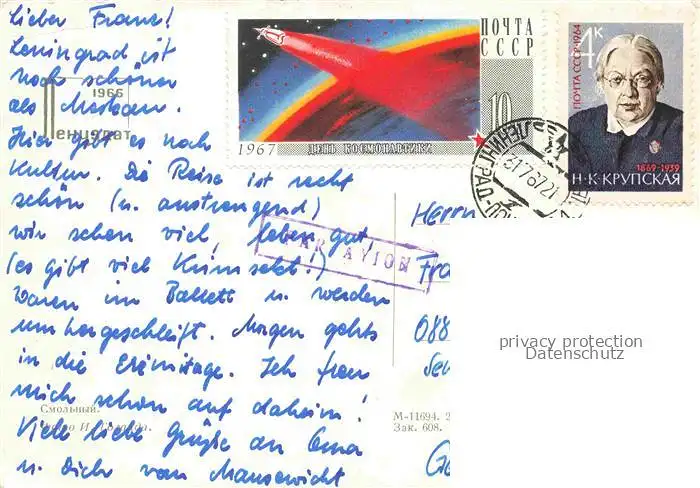 Lieber Franz!
Leningrad ist
noch schöner
als Moskau.
Hier gibt es noch
Kultur. Die Reise ist recht
schön (u. anstrengend)
wir sehen viel, leben gut,
(es gibt viel Krimsekt!)
waren im Ballett u. werden
umhergeschleift. Morgen gehts
in die Eremitage. Ich freu
mich schon auf daheim!
Viele liebe Grüße an Oma
u. Dich vom Mausewicht
1966
Ленинград
Смольный.
Фото И.
ПОЧТА
СССР
10
1967 ДЕНЬ КОСМОНАВТИКИ
4К
ПОЧТА СССР·1964
1869-1939
Н·К·КРУПСКАЯ
ЛЕНИНГРАД
PAR AVION
Herrn
Fra
088
М-11694. 2
Зак. 608.
privacy protection
Datenschutz